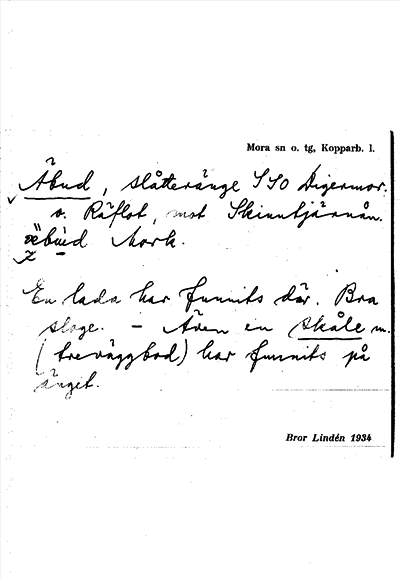 Mora sn o. tg, Kopparb. l.
Åbud, slåtteränge SSO Digermor.
o. Räflot, mot Skinntjärnån.
Mork.
En lada har funnits där. Bra
sloge. – Även en skåle m.
(treväggbod) har funnits på
änget.
Bror Lindén 1934